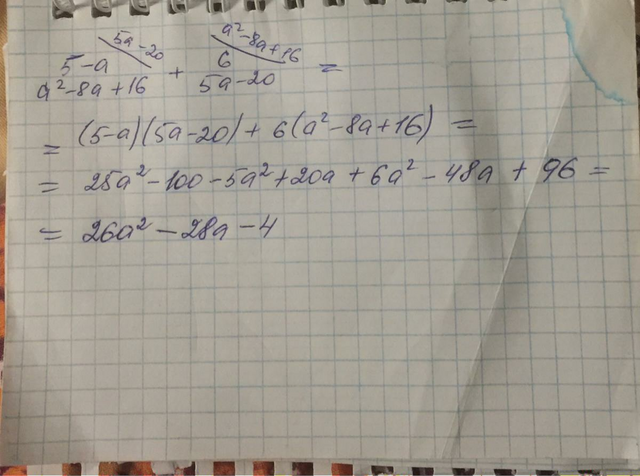 5a-20 a²-8a+16
5-a 6
a²-8a+16 + 5a-20 =
= (5-a)(5a-20) + 6(a²-8a+16) =
= 25a²-100-5a²+20a+6a²-48a+96=
= 26a²-28a-4